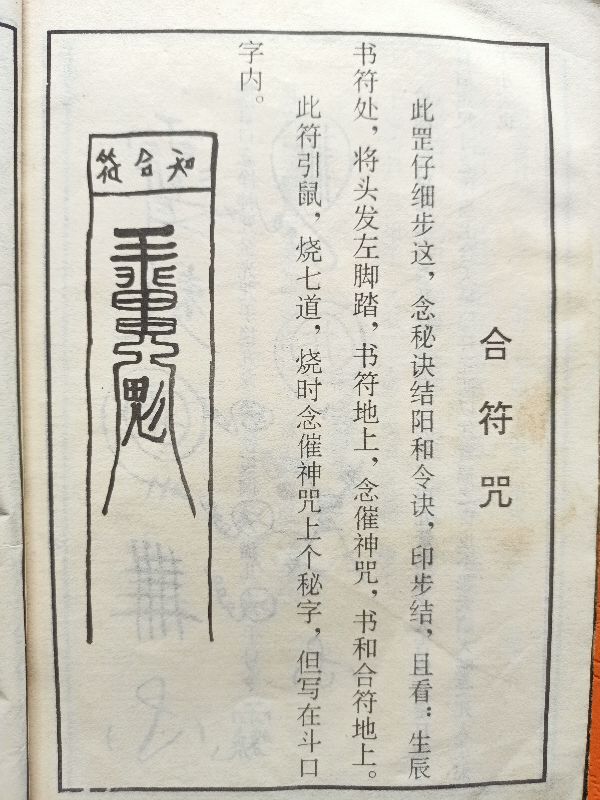 合符咒
此罡仔细步这，念秘诀结阳和令诀，印步结，且看：生辰
书符处，将头发左脚踏，书符地上，念催神咒，书和合符地上。
此符引鼠，烧七道，烧时念催神咒上个秘字，但写在斗口
字内。
和合符